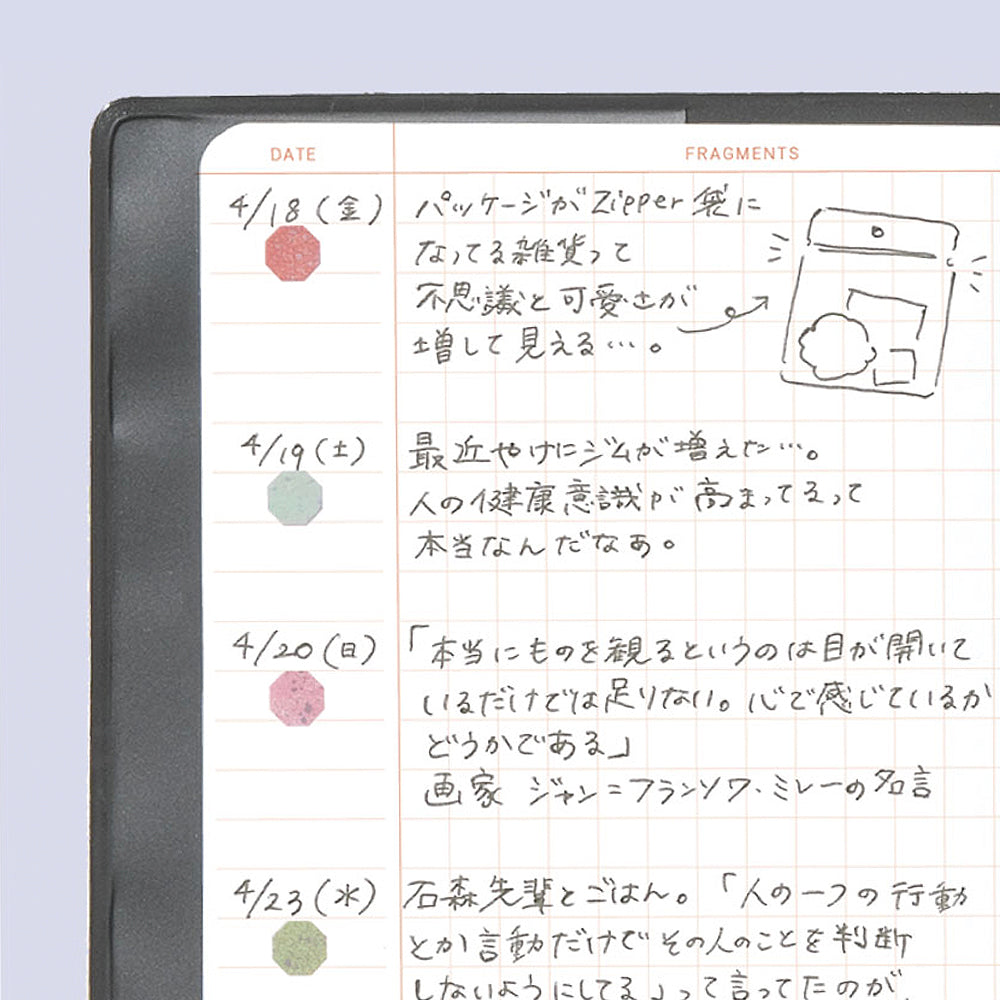 DATE
FRAGMENTS
4/18(金)
パッケージがZipper袋に
なってる雑貨って
不思議と可愛さが
増して見える…。
4/19(土)
最近やけにジムが増えた…。
人の健康意識が高まってるって
本当なんだなあ。
4/20(日)
「本当にものを観るというのは目が開いて
いるだけでは足りない。心で感じているか
どうかである」
画家 ジャン=フランソワ・ミレーの名言
4/23(水)
石森先輩とごはん。「人の一つの行動
とか言動だけでその人のことを判断
しないようにしてる」って言ってたのが